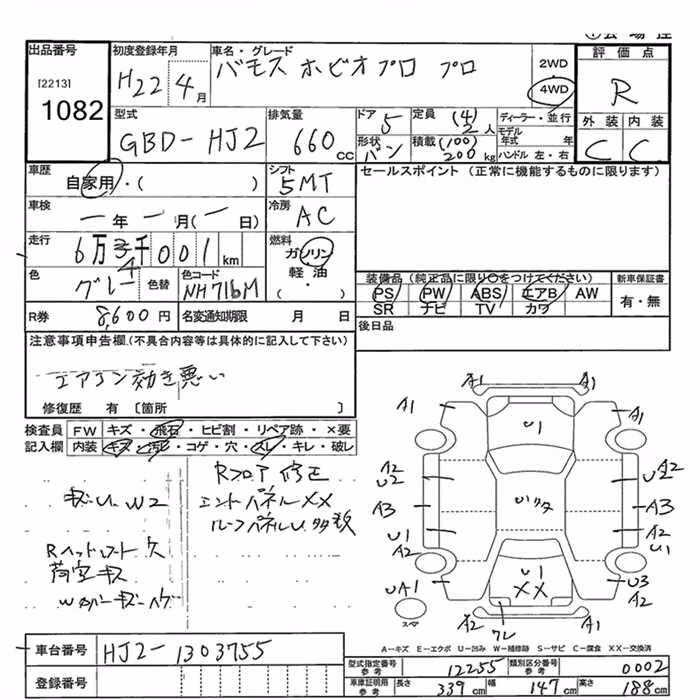 出品番号
[2213]
1082
初度登録年月
H22 4月
車名・グレード
バモス ホビオプロ プロ
2WD
4WD
評価点
R
外装 内装
C C
型式
GBD-HJ2
排気量
660cc
ドア
5
定員 (4)
2人
形状
バン
積載 (100)
200kg
ディーラー・並行
モデル年式 年
ハンドル 左・右
車歴
自家用・( )
シフト
5MT
セールスポイント (正常に機能するものに限ります)
車検
ー年ー月(ー日)
冷房
AC
走行
6万4千001km
燃料
ガソリン
軽油
( ・ )
色
グレー
色替
色コード
NH716M
装備品(純正品に限り○をつけてください)
新車保証書
PS PW ABS エアB AW
SR ナビ TV カワ
有・無
R券 8,600円
名変通知期限 月 日
後日品
注意事項申告欄(不具合内容等は具体的に記入して下さい)
エアコン効き悪い
修復歴 有 〔箇所 〕
検査員
記入欄
FW キズ・飛石・ヒビ割・リペア跡・×要
内装 キズ・汚れ・コゲ・穴・スレ・キレ・破レ
Rフロア修正
エンドパネルXX
ルーフパネルU多数
W2
Rヘッドレスト欠
荷室キズ
A1 A1
A1 A1
U1
A2 U2
A2
U2
A3 A3
U1 A2
A2 U1
U1
XX
UA1
U3
A2
A2 A2
スペア
A-キズ E-エクボ U-凹み W-補修跡 S-サビ C-腐食 XX-交換済
車台番号
HJ2-1303755
登録番号
型式指定番号 参考 12255
類別区分番号 参考 0002
車庫証明用 参考 長さ 339cm 幅 147cm 高さ 188cm